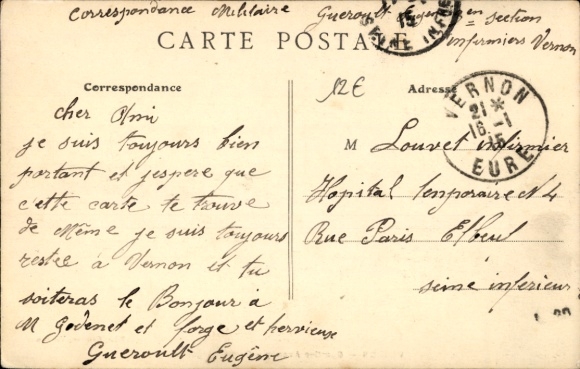 Correspondance Militaire
Gueroult Eugène en section
infirmiers Vernon
15
SEINE INFRE
CARTE POSTALE
Correspondance
12€
Adresse
VERNON
21 *
16 - 1
15
EURE
cher Ami
je suis toujours bien
portant et j'espere que
cette carte te trouve
de Même je suis toujours
restée à Vernon et tu
soiteras le Bonjour à
M Godenet et forge et hervieuse
Gueroult Eugène
M Louvet infirmier
Hopital temporaire N 4
Rue Paris Elbeuf
seine inferieur